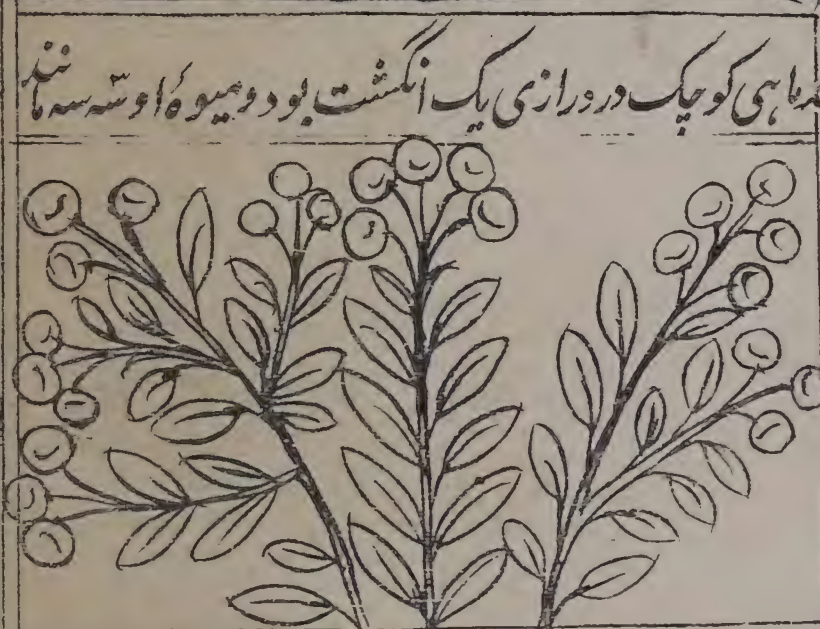 ماهی کوچک در درازی یک انگشت بود و میوهٔ او سه سه مانند